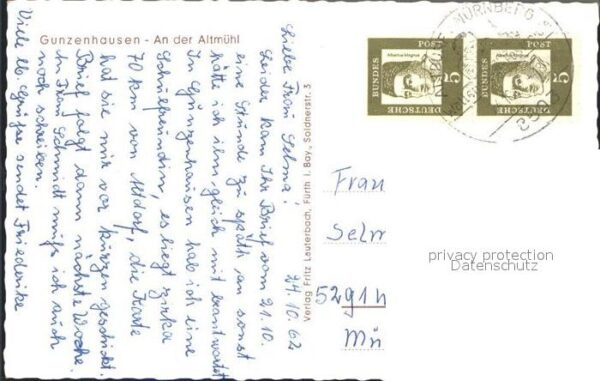 Gunzenhausen - An der Altmühl
24.10.62
Liebe Frau Selma!
Leider kam Ihr Brief vom 21.10.
eine Stunde zu spät an sonst
hätte ich ihn gleich mit beantwortet
In Gunzenhausen hab ich eine
Schulfreundin, es liegt zirka
70 km von Altdorf, die Karte
hat sie mir vor kurzen geschickt.
Brief folgt dann nächste Woche.
An Frau Schmidt muß ich auch
noch schreiben.
Viele lb. Grüße sendet Friederike
Verlag Fritz Lauterbach, Fürth i. Bay., Soldnerstr. 3
DEUTSCHE
BUNDES
POST
5
DEUTSCHE
BUNDES
POST
5
NÜRNBERG
Frau
Selm
privacy protection
Datenschutz